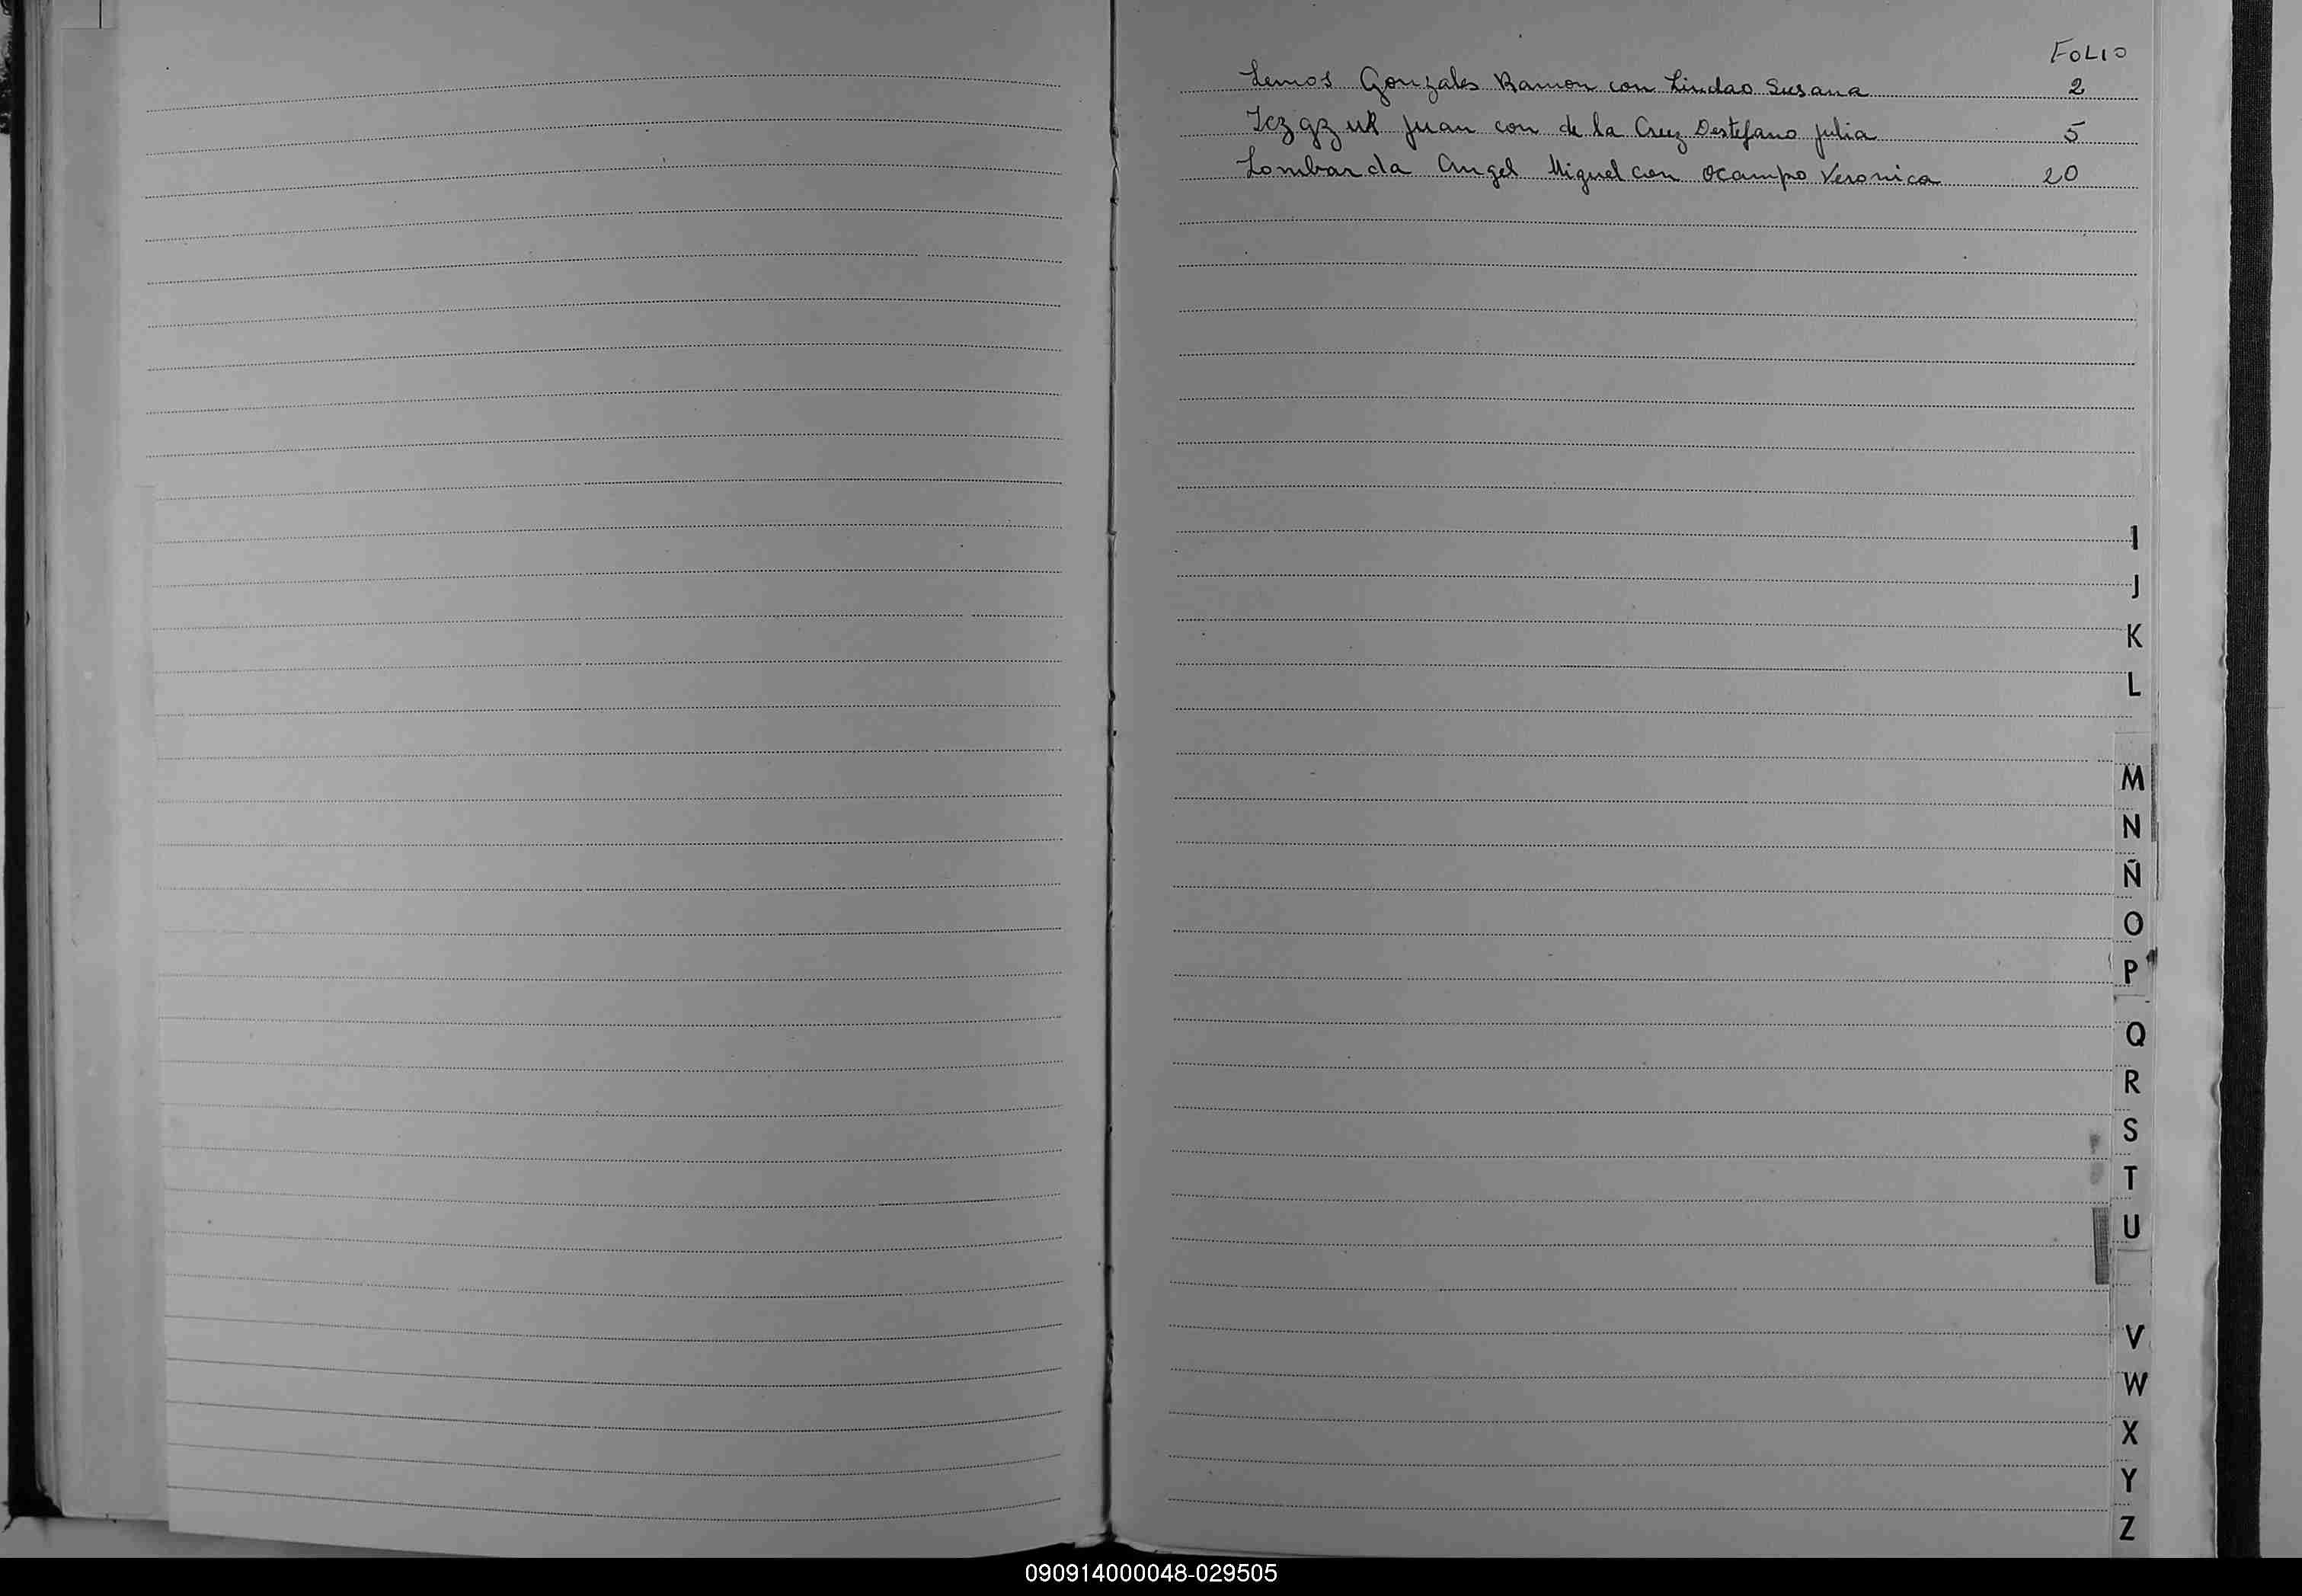 FOLIO
Lemos Gonzales Ramon con Lindao Susana 2
Juan con de la Cruz Destefano Julia 5
Lombarda Angel Miguel con Ocampo Veronica 20
I
J
K
L
M
N
Ñ
O
P
Q
R
S
T
U
V
W
X
Y
Z
090914000048-029505